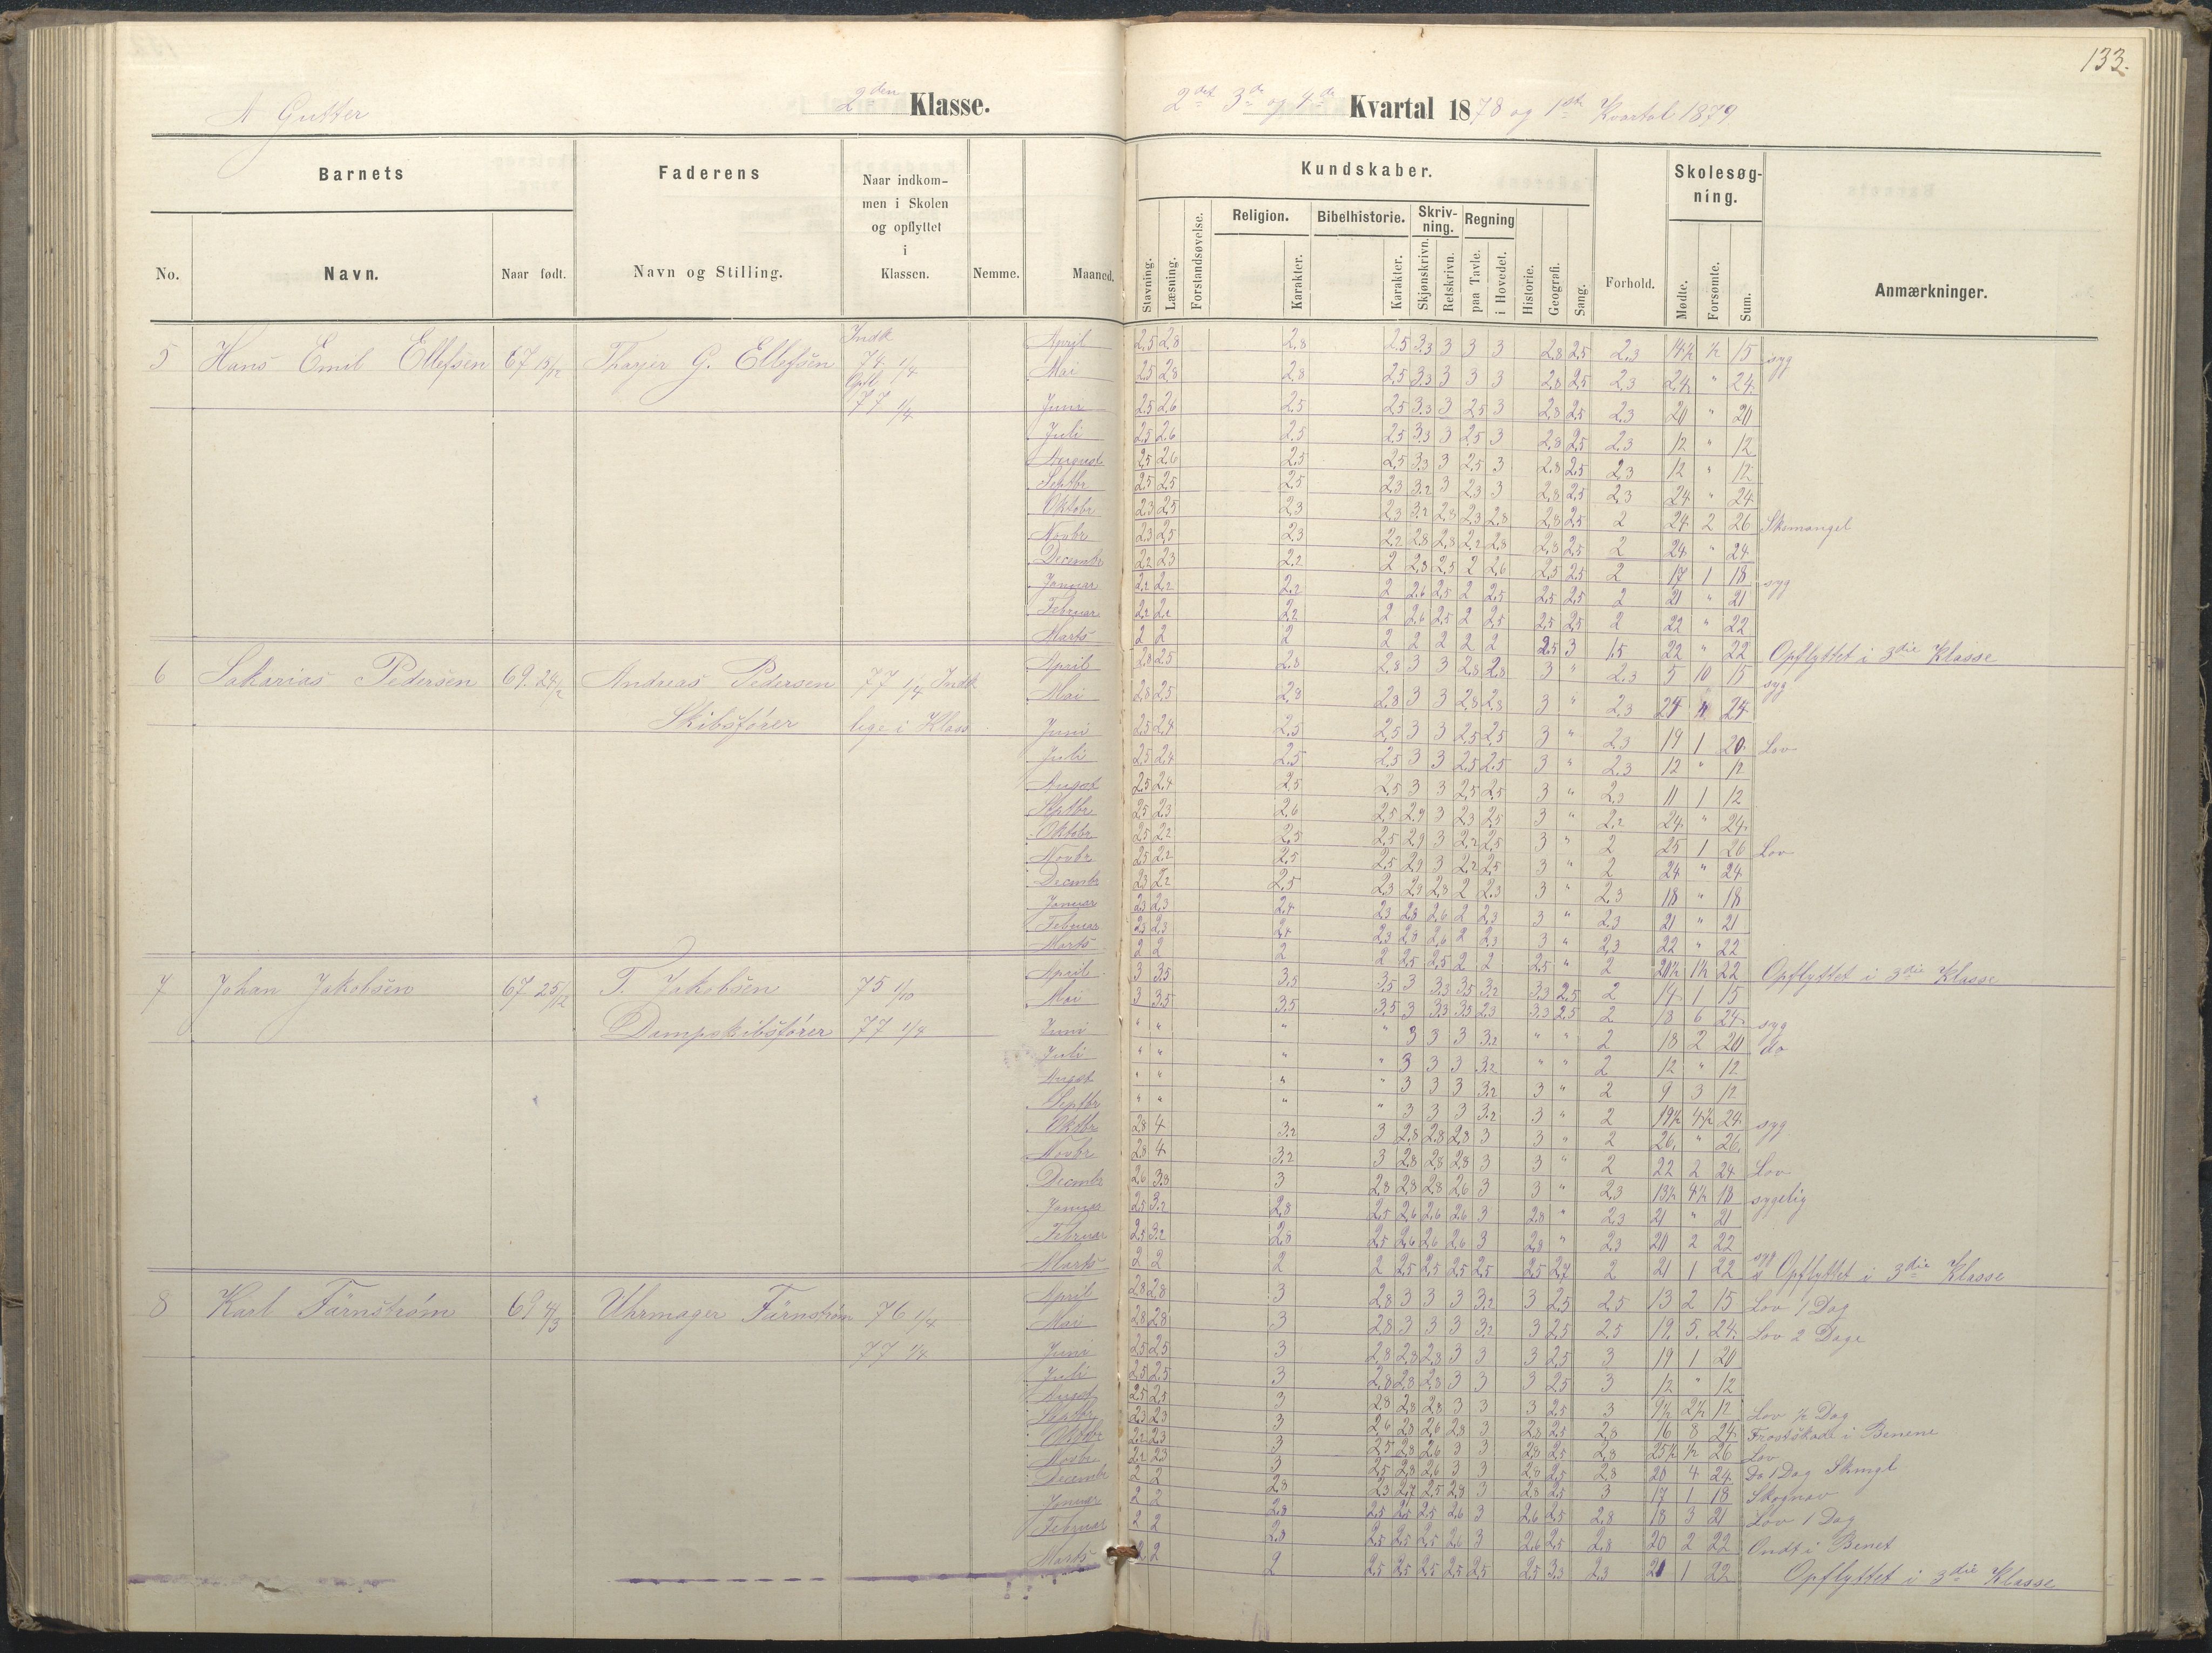 133.
A Gutter 2den Klasse. 2det 3de og 4de Kvartal 1878 og 1ste Kvartal 1879
Barnets Faderens Naar indkom-
men i Skolen
og opflyttet
i
Klassen.
Kundskaber. Skolesøg-
ning.
No. Navn. Naar født. Navn og Stilling. Nemme. Maaned.
Stavning. Læsning. Forstandsøvelse. Religion. Karakter. Bibelhistorie. Karakter. Skriv-
ning. Skjønskrivn. Retskrivn. Regning paa Tavle. i Hovedet. Historie. Geografi. Sang. Forhold. Mødte. Forsømte. Sum. Anmærkninger.
5 Hans Emil Ellefsen 67 13/12 G. Ellefsen Indk 74 1/4 Opfl 77 1/4
April 2,5 2,8 2,8 2,5 3,3 3 3 3 2,8 2,5 2,3 14½ ½ 15 syg
Mai 2,5 2,8 2,8 2,5 3,3 3 3 3 2,8 2,5 2,3 24 " 24
Juni 2,5 2,6 2,5 2,5 3,3 3 2,5 3 2,8 2,5 2,3 20 " 20
Juli 2,5 2,6 2,5 2,5 3,3 3 2,5 3 2,8 2,5 2,3 12 " 12
August 2,5 2,6 2,5 2,5 3,3 3 2,5 3 2,8 2,5 2,3 12 " 12
Septbr 2,5 2,5 2,5 2,3 3,2 3 2,3 3 2,8 2,5 2,3 24 " 24
Oktobr 2,3 2,5 2,3 2,3 3,2 2,8 2,3 2,8 2,8 2,5 2 24 2 26 Skomangel
Novbr 2,3 2,5 2,3 2,2 2,8 2,8 2,2 2,8 2,8 2,5 2 24 " 24
Decembr 2,2 2,3 2,2 2 2,8 2,5 2 2,6 2,5 2,5 2 17 1 18 syg
Januar 2,2 2,2 2,2 2 2,6 2,5 2 2,5 2,5 2,5 2 21 " 21
Februar 2,2 2,2 2,2 2 2,6 2,5 2 2,5 2,5 2,5 2 22 " 22
Marts 2 2 2 2 2 2 2 2 2,5 3 1,5 22 " 22 Opflyttet i 3die Klasse
6 Sakarias Pedersen 69 24/2 Andreas Pedersen Skibsfører 77 1/4 Indk lige i Klass
April 2,8 2,5 2,8 2,8 3 3 2,8 2,8 3 " 2,3 5 10 15 syg
Mai 2,8 2,5 2,8 2,8 3 3 2,8 2,8 3 " 2,3 24 " 24
Juni 2,5 2,4 2,5 2,5 3 3 2,5 2,5 3 " 2,3 19 1 20 Lov
Juli 2,5 2,4 2,5 2,5 3 3 2,5 2,5 3 " 2,3 12 " 12
August 2,5 2,4 2,5 2,5 3 3 2,5 2,5 3 " 2,3 11 1 12
Septbr 2,5 2,3 2,6 2,5 2,9 3 2,3 2,5 3 " 2,2 24 " 24
Oktobr 2,5 2,2 2,5 2,5 2,9 3 2,2 2,5 3 " 2 25 1 26 Lov
Novbr 2,5 2,2 2,5 2,5 2,9 3 2,2 2,5 3 " 2 24 " 24
Decmbr 2,3 2,2 2,5 2,3 2,9 2,8 2 2,3 3 " 2,3 18 " 18
Januar 2,3 2,3 2,4 2,3 2,8 2,6 2 2,3 3 " 2,3 21 " 21
Februar 2,3 2,3 2,4 2,3 2,8 2,6 2 2,3 3 " 2,3 22 " 22
Marts 2 2 2 2 2,5 2,5 2 2 2,5 " 2 20½ 1½ 22 Opflyttet i 3die Klasse
7 Johan Jakobsen 67 25/12 T. Jakobsen Dampskibsfører 75 1/10 77 1/4
April 3 3,5 3,5 3,5 3 3,3 3,5 3,2 3,3 2,5 2 14 1 15
Mai 3 3,5 3,5 3,5 3 3,3 3,5 2,3 3,3 2,5 2 18 6 24 syg
Juni " " " " 3 3 3 3,2 " " 2 18 2 20 do
Juli " " " " 3 3 3 3,2 " " 2 12 " 12
August " " " " 3 3 3 3,2 3 " 2 9 3 12
Septbr " " " " 3 3 3 3,2 3 " 2 19½ 4½ 24 syg
Oktbr 2,8 4 3,2 3 2,8 2,8 2,8 3 3 " 2 26 " 26
Novbr 2,8 4 3,2 3 2,8 2,8 2,8 3 3 " 2 22 2 24 Lov
Decmbr 2,6 3,3 3 2,8 2,8 2,8 2,6 3 3 " 2,3 13½ 4½ 18 sygelig
Januar 2,5 3,2 2,8 2,5 2,6 2,6 2,6 3 2,8 " 2,3 21 " 21
Februar 2,5 3,2 2,8 2,5 2,6 2,6 2,6 3 2,8 " 2,3 20 2 22 syg
Marts 2 2 2 2 2,5 2,5 2,5 2,5 2,5 2,7 2 21 1 22 Opflyttet i 3die Klasse
8 Karl Färnstrøm 69 4/3 Uhrmager Färnstrøm 76 1/4 77 1/4
April 2,8 2,8 3 2,8 3 3 3 3,2 3 2,5 2,5 13 2 15 Lov 1 Dag
Mai 2,8 2,8 3 2,8 3 3 3 3,2 3 2,5 2,5 19 5 24 Lov 2 Dage
Juni 2,5 2,5 3 2,8 2,8 2,8 3 3 3 2,5 3 19 1 20
Juli 2,5 2,5 3 2,8 2,8 2,8 3 3 3 2,5 3 12 " 12
August 2,5 2,5 3 2,8 2,8 2,8 3 3 3 2,5 3 9½ 2½ 12 Lov ½ Dag
Septbr 2,3 2,3 3 2,6 2,8 2,6 2,8 3 2,8 2,5 2,8 16 8 24 Frostskade i Benene
Oktobr 2,2 2,3 3 2,5 2,8 2,6 3 3 2,8 2,5 2,8 25½ ½ 26 Lov
Novbr 2,2 2,3 3 2,5 2,8 2,6 3 3 2,8 2,5 2,8 20 4 24 Do 1 Dag Skmgl
Decembr 2 2 2,8 2,3 2,7 2,5 2,8 3 2,8 2,5 3 17 1 18
Januar 2 2 2,8 2,5 2,5 2,5 2,6 3 2,6 2,5 2,8 18 3 21 Lov 1 Dag
Februar 2 2 2,8 2,5 2,5 2,5 2,6 3 2,6 2,5 2,8 20 2 22 Ondt i Benet
Marts 2 2 2 2,5 2,5 2,5 2,5 2,5 2,5 3,3 2,3 21 1 22 Opflyttet i 3die Klasse